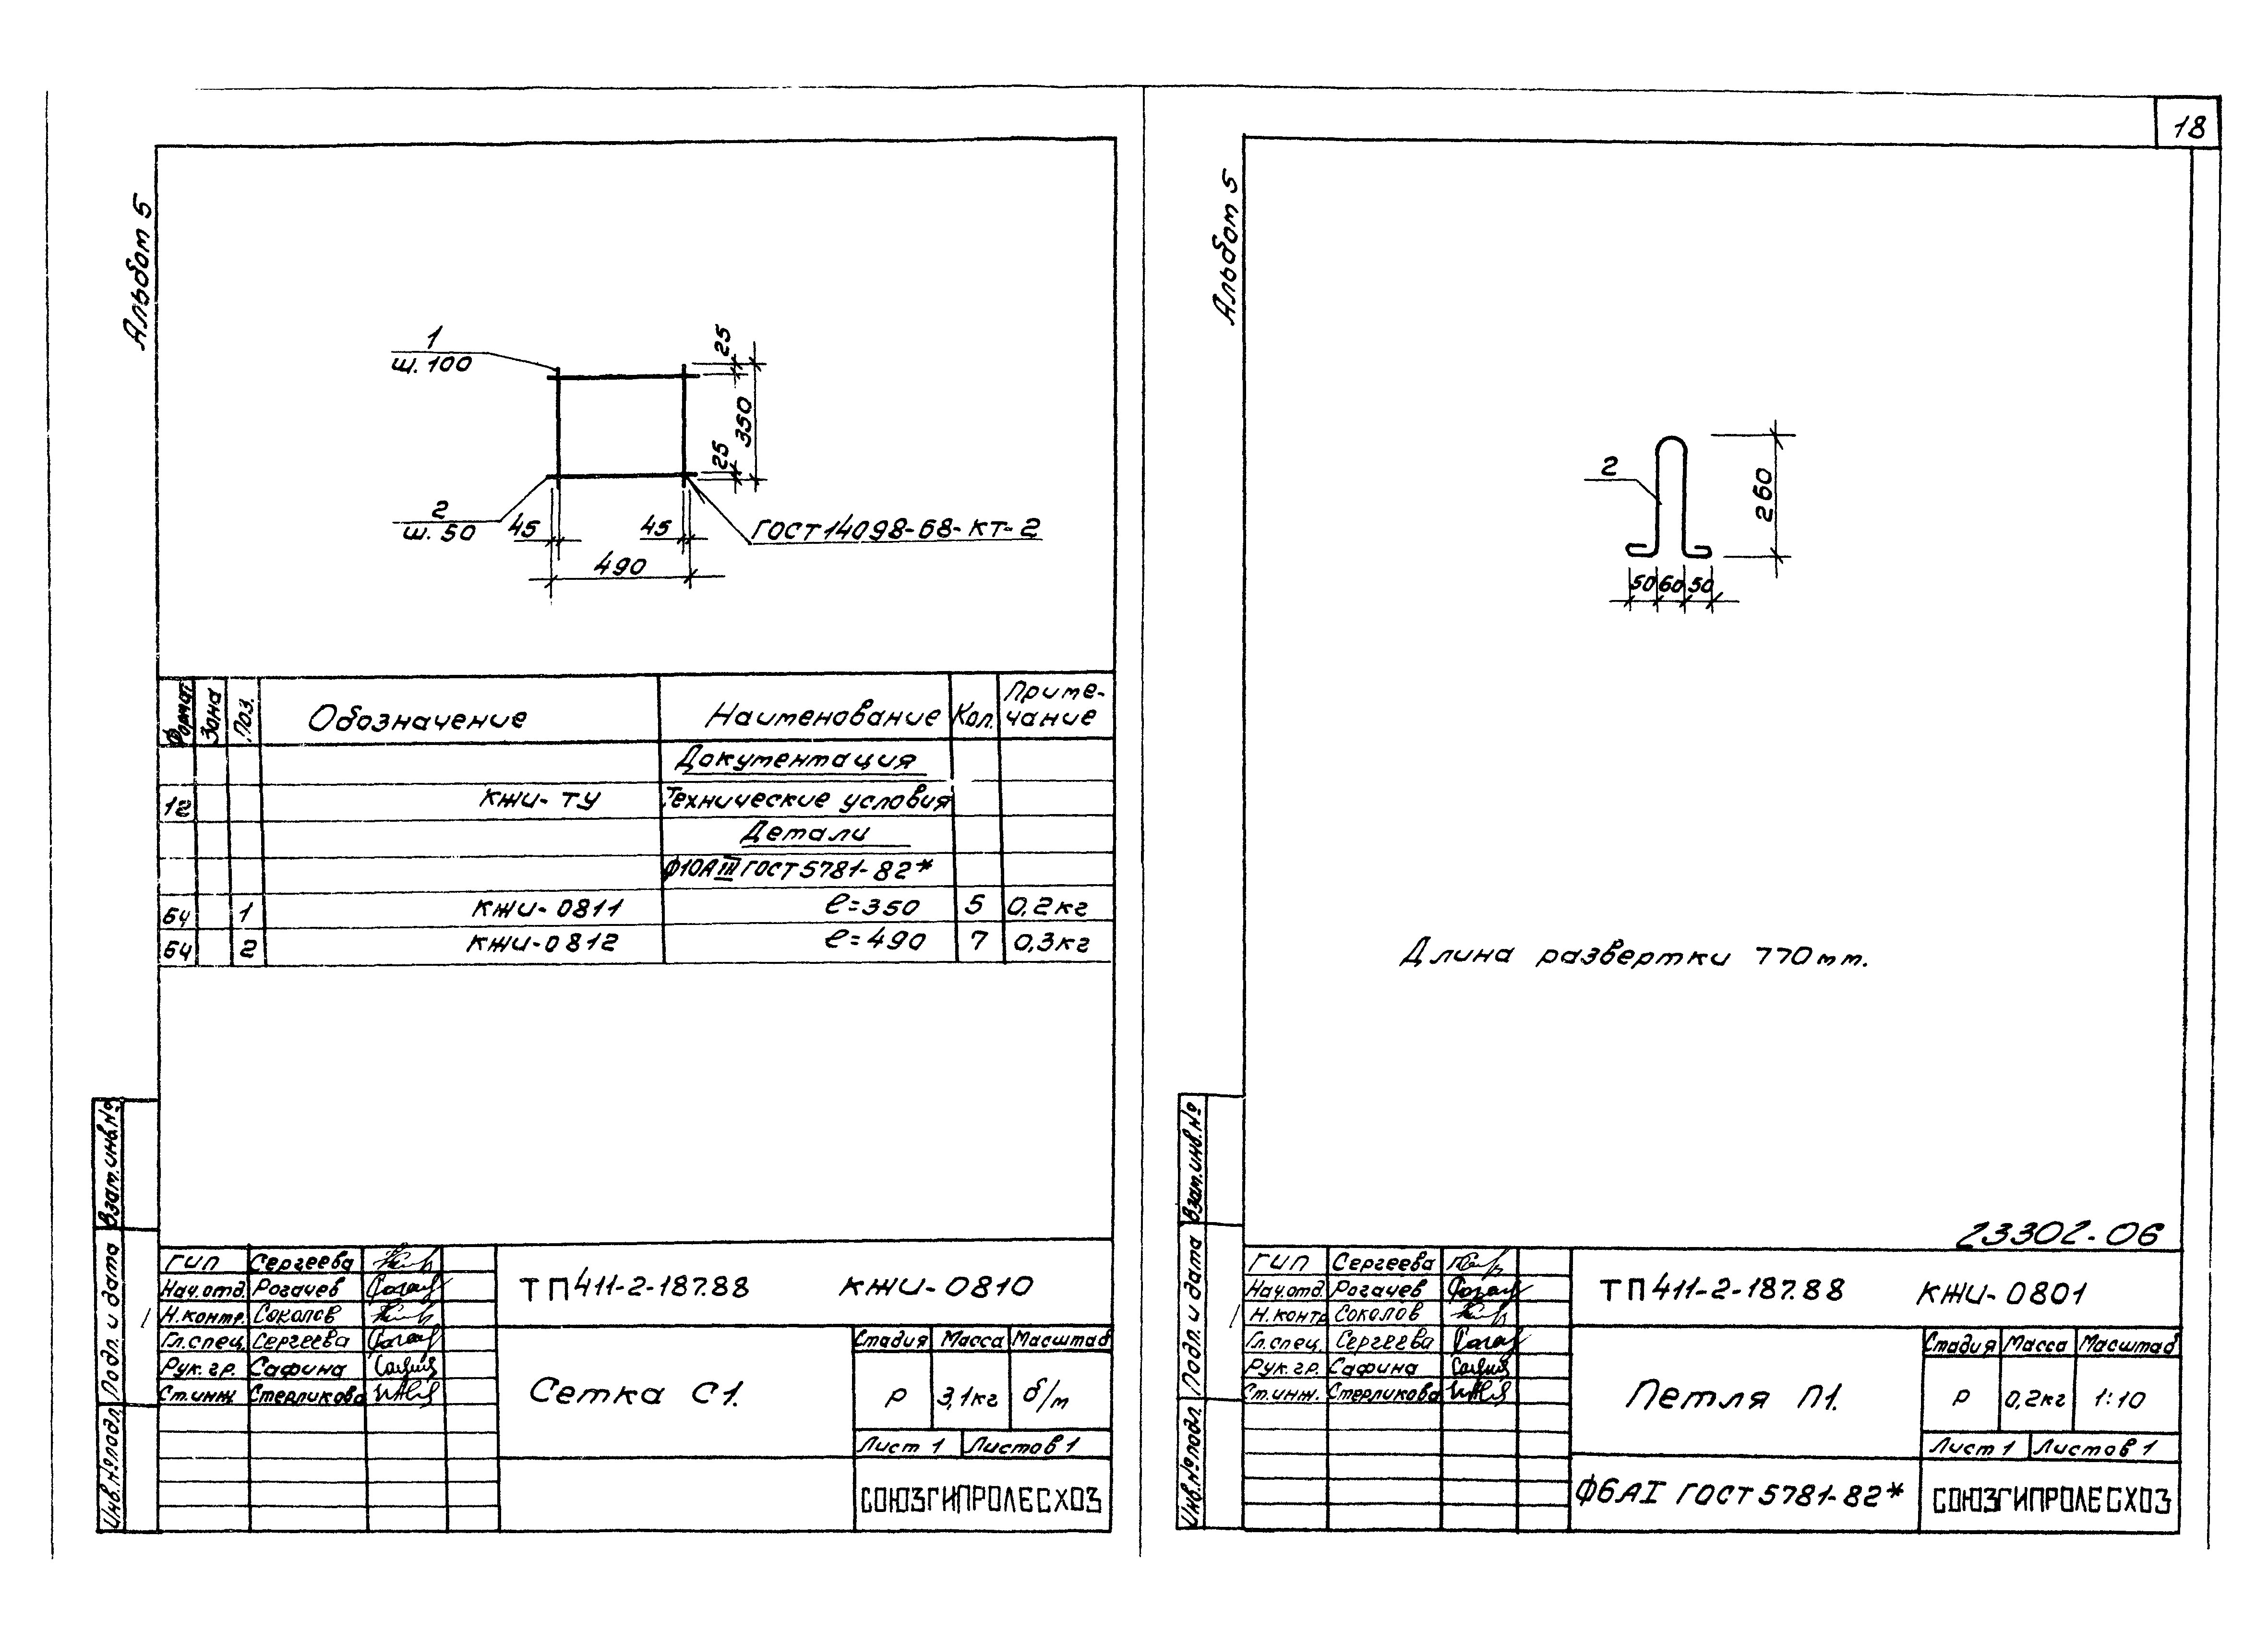 18
Альбом 5
1
ш. 100
25
350
25
2
ш. 50
45
45
490
ГОСТ 14098-68-КТ-2
Формат Зона Поз. Обозначение Наименование Кол. Приме-
чание
Документация
12 КЖИ-ТУ Технические условия
Детали
ф10АIII ГОСТ 5781-82*
БЧ 1 КЖИ-0811 ℓ=350 5 0,2кг
БЧ 2 КЖИ-0812 ℓ=490 7 0,3кг
Взам.инв.№
Подп. и дата
Инв.№подл.
ГИП Сергеева
Нач.отд. Рогачев
Н.контр. Соколов
Гл.спец. Сергеева
Рук.гр. Сафина
Ст.инж. Стерликова
ТП 411-2-187.88 КЖИ-0810
Сетка С1.
Стадия Масса Масштаб
Р 3,1кг б/м
Лист 1 Листов 1
СОЮЗГИПРОЛЕСХОЗ
Альбом 5
2
260
50 60 50
Длина развертки 770мм.
23302-06
Взам.инв.№
Подп. и дата
Инв.№подл.
ГИП Сергеева
Нач.отд. Рогачев
Н.контр Соколов
Гл.спец. Сергеева
Рук.гр. Сафина
Ст.инж. Стерликова
ТП 411-2-187.88 КЖИ-0801
Петля П1.
Стадия Масса Масштаб
Р 0,2кг 1:10
Лист 1 Листов 1
ф6АI ГОСТ 5781-82*
СОЮЗГИПРОЛЕСХОЗ